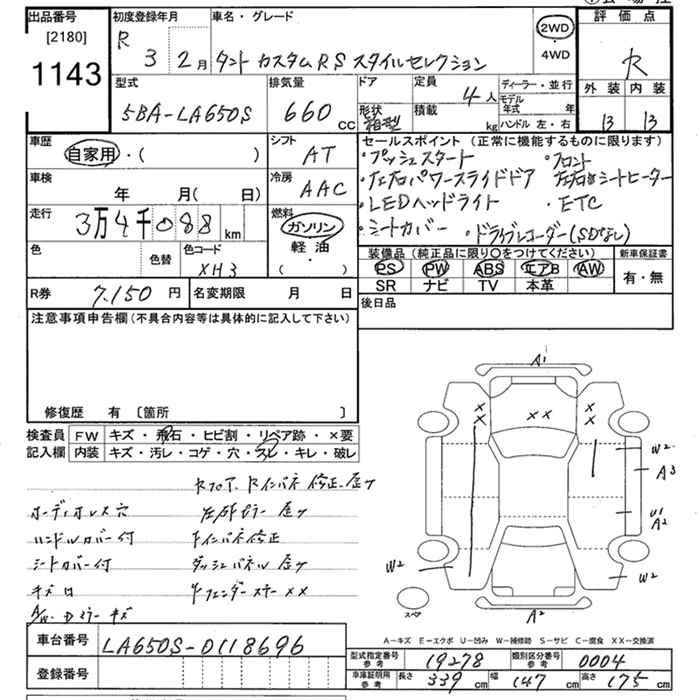 出品番号
[2180]
1143
初度登録年月
R 3 2月
車名・グレード
タント カスタムRS スタイルセレクション
2WD
・
4WD
評価点
R
外装 内装
B B
型式
5BA-LA650S
排気量
660 cc
ドア
形状
箱型
定員
4人
積載
kg
ディーラー・並行
モデル年式 年
ハンドル 左・右
車歴
自家用・( )
シフト
AT
車検
年 月( 日)
冷房
AAC
走行
3万4千088 km
燃料
ガソリン
軽油
( )
色
色替
色コード
XH3
セールスポイント (正常に機能するものに限ります)
・プッシュスタート
・左右パワースライドドア
・LEDヘッドライト
・シートカバー
・フロント
シートヒーター
・ETC
・ドライブレコーダー(SDなし)
装備品(純正品に限り〇をつけてください)
PS PW ABS エアB AW
SR ナビ TV 本革
新車保証書
有・無
R券
7.150 円
名変期限 月 日
後日品
注意事項申告欄(不具合内容等は具体的に記入して下さい)
修復歴 有 〔箇所 〕
検査員
記入欄
FW キズ・飛石・ヒビ割・リペア跡・×要
内装 キズ・汚レ・コゲ・穴・スレ・キレ・破レ
オーディオレス穴
ハンドルカバー付
シートカバー付
キズ凹
ダッシュパネル
A1
××
W2
A3
U1
A2
W2
W2
A2
スペア
A-キズ E-エクボ U-凹み W-補修跡 S-サビ C-腐食 XX-交換済
車台番号
LA650S-0118696
登録番号
型式指定番号
参考
19278
類別区分番号
参考
0004
車庫証明用
参考
長さ 339 cm
幅 147 cm
高さ 175 cm